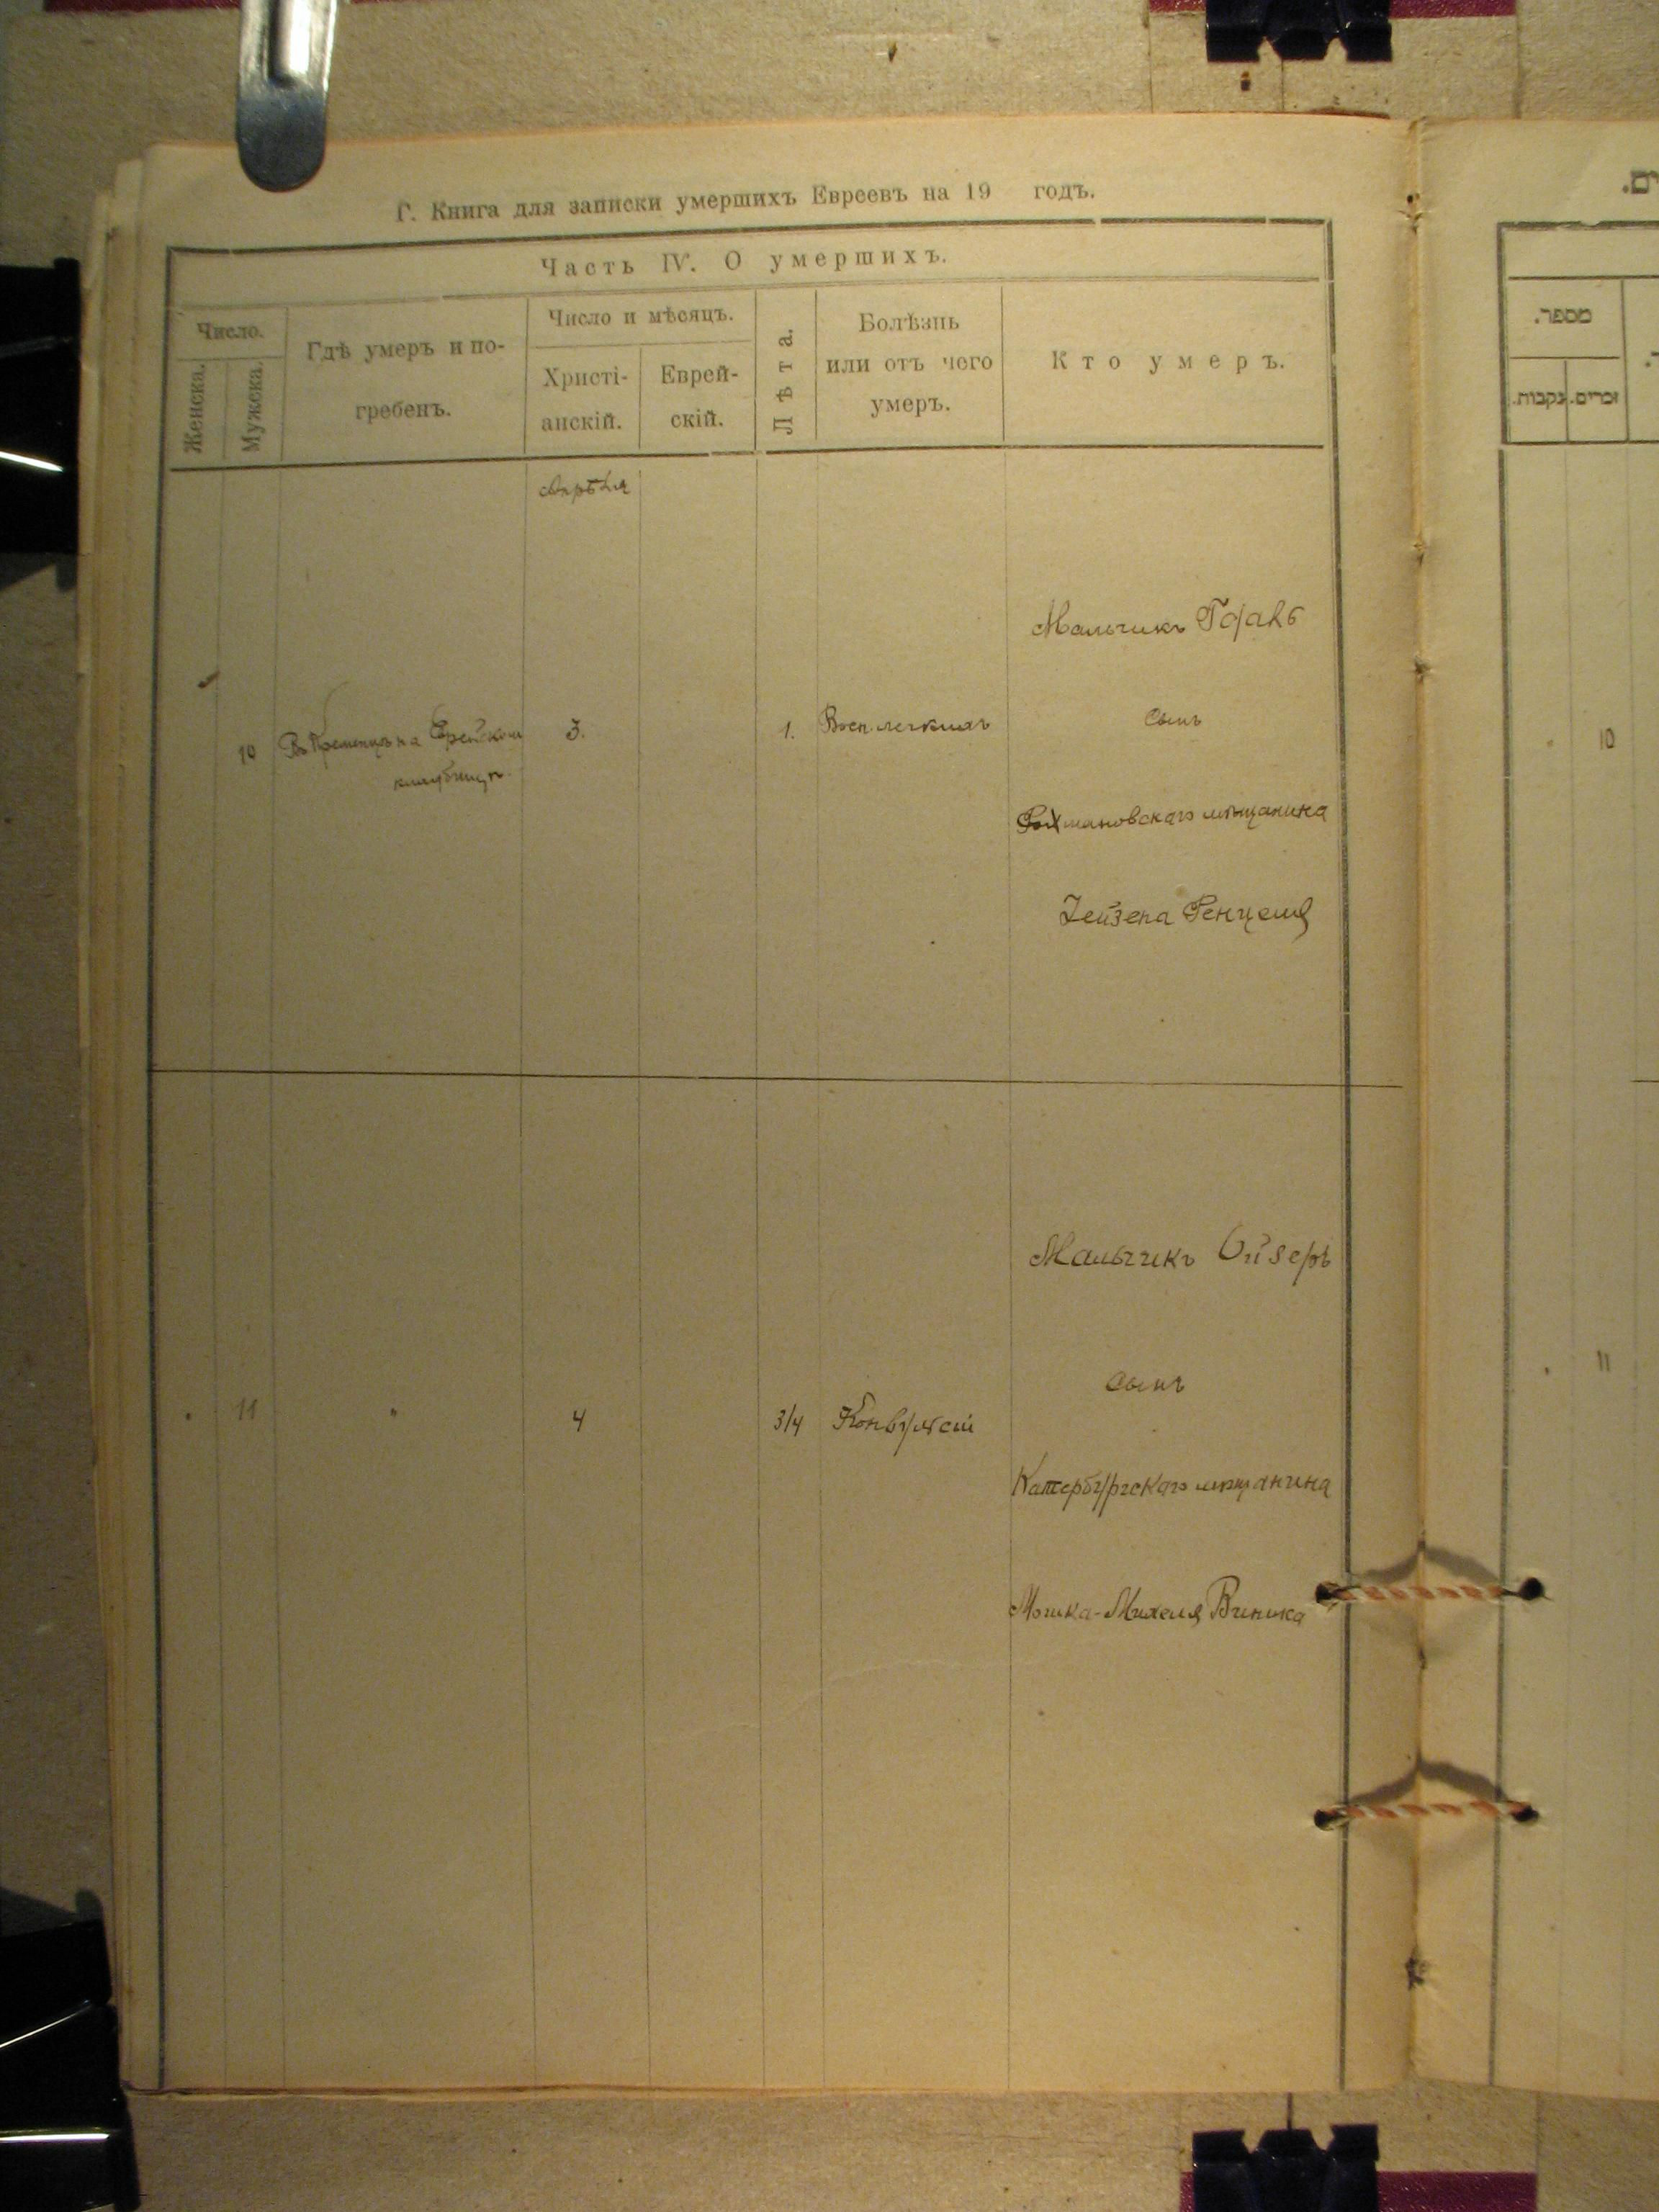 Г. Книга для записки умершихъ Евреевъ на 19 годъ.
Часть IV. О умершихъ.
Число.
Женска.
Мужска.
Гдѣ умеръ и по-
гребенъ.
Число и мѣсяцъ.
Христі-
анскій.
Еврей-
скій.
Лѣта.
Болѣзнь
или отъ чего
умеръ.
Кто умеръ.
Апрѣля
10
Въ Кременцѣ на Еврейском
кладбищѣ.
3.
1.
Восп. легкихъ
Мальчикъ
Сынъ
Рахмановскаго мѣщанина
Лейзера
11
"
4
3/4
Конвульсіи
Мальчикъ Ойзеръ
Сынъ
Катербургскаго мѣщанина
Мошка-Михеля Виника
מספר.
זכרים.
נקבות.
10
11